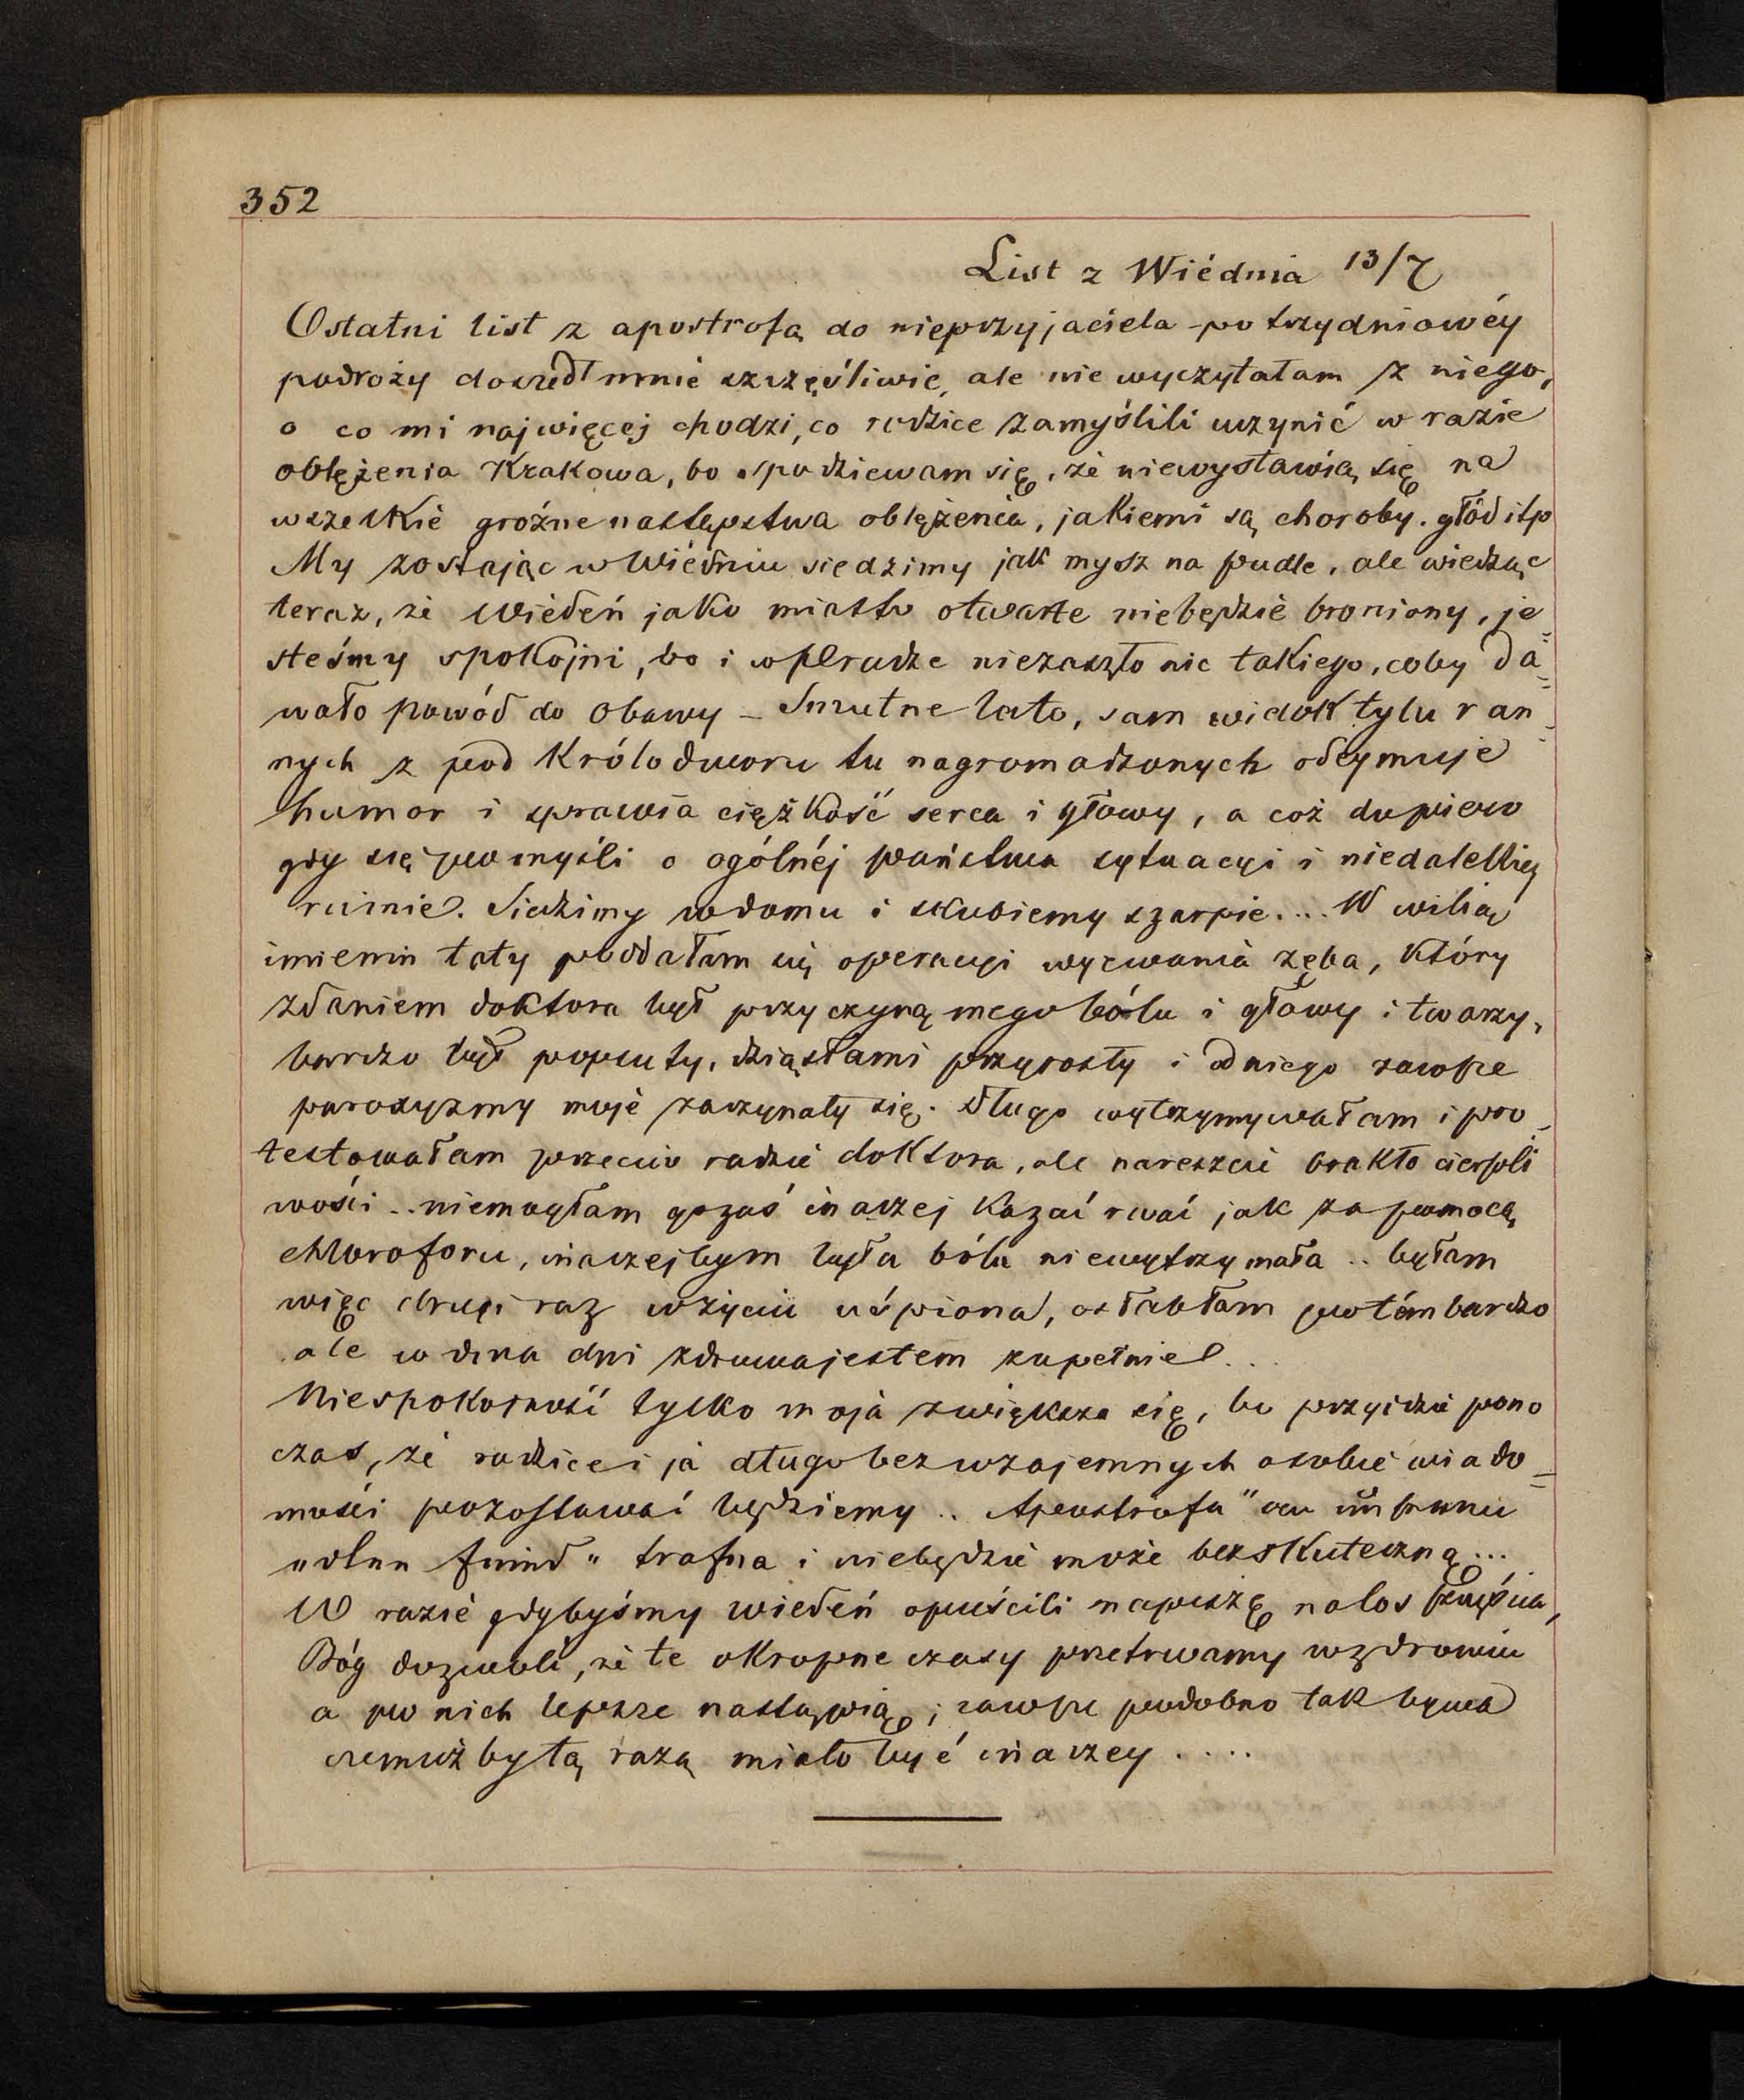 352
List z Wiédnia 13/7
Ostatni list z apostrofą do nieprzyjaciela po trzydniowéy
podroży doszedł mnie szczęśliwie, ale nie wyczytałam z niego,
o co mi najwięcej chodzi, co rodzice zamyślili uczynić w razie
oblężenia Krakowa, bo spodziewam się, że niewystawią się na
wszelkie groźne następstwa oblężenia, jakiemi są choroby. głód itp
My zostając w Wiédniu siedzimy jak mysz na pudle, ale wiedząc
teraz, że Wiédeń jako miasto otwarte niebędzie broniony, je=
steśmy spokojni, bo i w Pradze niezaszło nic takiego, coby da=
wało powód do obawy – Smutne lato, sam widok tylu ran=
nych z pod Królodworu tu nagromadzonych odejmuje
humor i sprawia ciężkość serca i głowy, a coż dopiero
gdy się pomyśli o ogólnéj państwa sytuacyi i niedalekiej
ruinie. Siedzimy w domu i skubiemy szarpie.... W wilią
imienin taty poddałam się operacyi wyrwania zęba, który
zdaniem doktora był przyczyną mego bólu i głowy i twarzy,
bardzo był popsuty, dziąsłami przyrosły i od niego zawsze
paroxyzmy moje zaczynały się. Długo wytrzymywałam i pro=
testowałam przeciw radzie doktora, ale nareszcie brakło cierpli
wości .. niemogłam go zaś inaczej kazać rwać jak za pomocą
chloroforu, inaczejbym była bólu niewytrzymała .. byłam
więc drugi raz w życiu uśpiona, osłabłam potém bardzo
ale w dwa dni zdrowa jestem zupełnie..
Niespokojność tylko moja zwiększa się, bo przyidzie pono
czas, że rodzice i ja długo bez wzajemnych o sobie wiado=
mości pozostawać będziemy .. Apostrofa "an
trafna i niebędzie może bezskuteczną...
W razie gdybyśmy Wiedeń opuścili napiszę na los szczęścia,
Bóg dozwoli, że te okropne czasy przetrwamy w zdrowiu
a po nich lepsze nastąpią; zawsze podobno tak bywa
czemużby tą razą miało być inaczey ....